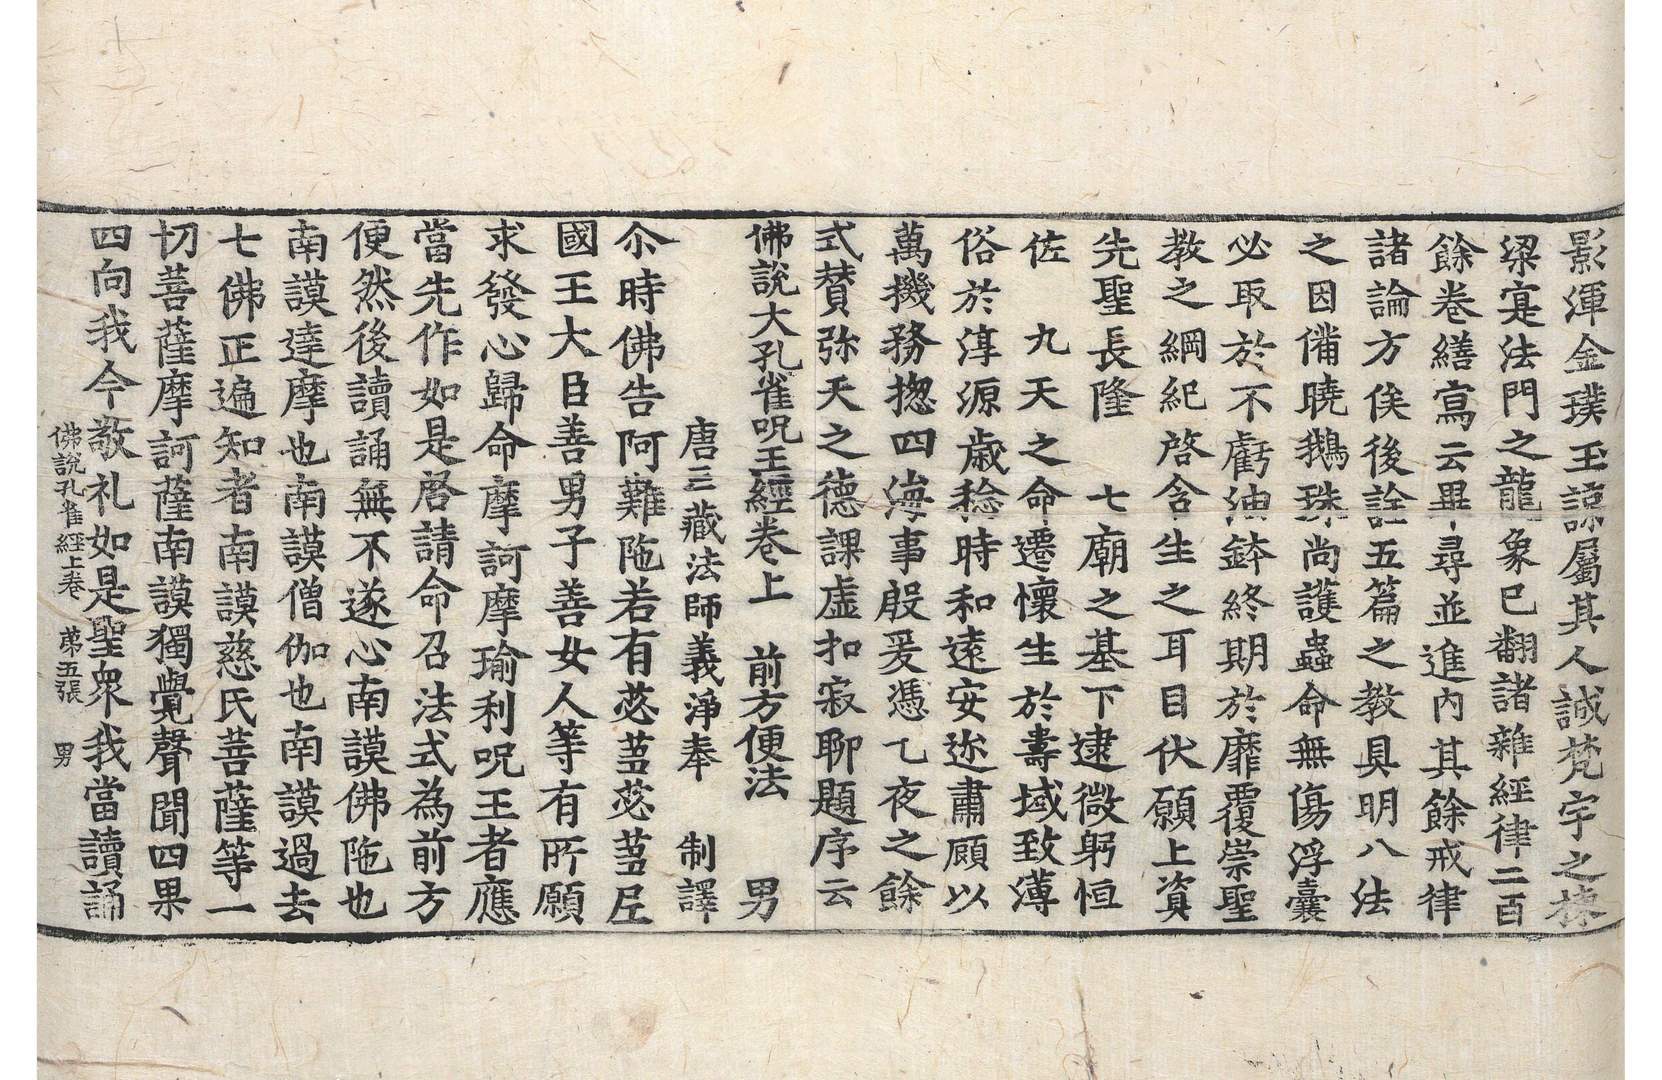 影渾金璞玉諒屬其人誠梵宇之棟
梁寔法門之龍象已翻諸雜經律二百
餘卷繕寫云畢尋並進內其餘戒律
諸論方俟後詮五篇之教具明八法
之因備曉鵝珠尚護蟲命無傷浮囊
必取於不虧油鉢終期於靡覆崇聖
教之綱紀啓含生之耳目伏願上資
先聖長隆　七廟之基下逮微躬恒
佐　九天之命遷懷生於壽域致薄
俗於淳源歲稔時和遠安迩肅顧以
萬機務揔四海事殷爰憑乙夜之餘
式賛弥天之德課虛扣寂聊題序云
佛說大孔雀呪王經卷上　前方便法　男
唐三藏法師義淨奉　制譯
尒時佛告阿難陁若有苾蒭苾蒭尼
國王大臣善男子善女人等有所願
求發心歸命摩訶摩瑜利呪王者應
當先作如是啓請命召法式為前方
便然後讀誦無不遂心南謨佛陁也
南謨達摩也南謨僧伽也南謨過去
七佛正遍知者南謨慈氏菩薩等一
切菩薩摩訶薩南謨獨覺聲聞四果
四向我今敬礼如是聖衆我當讀誦
佛說孔雀經上卷　第五張　男